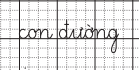 con đường